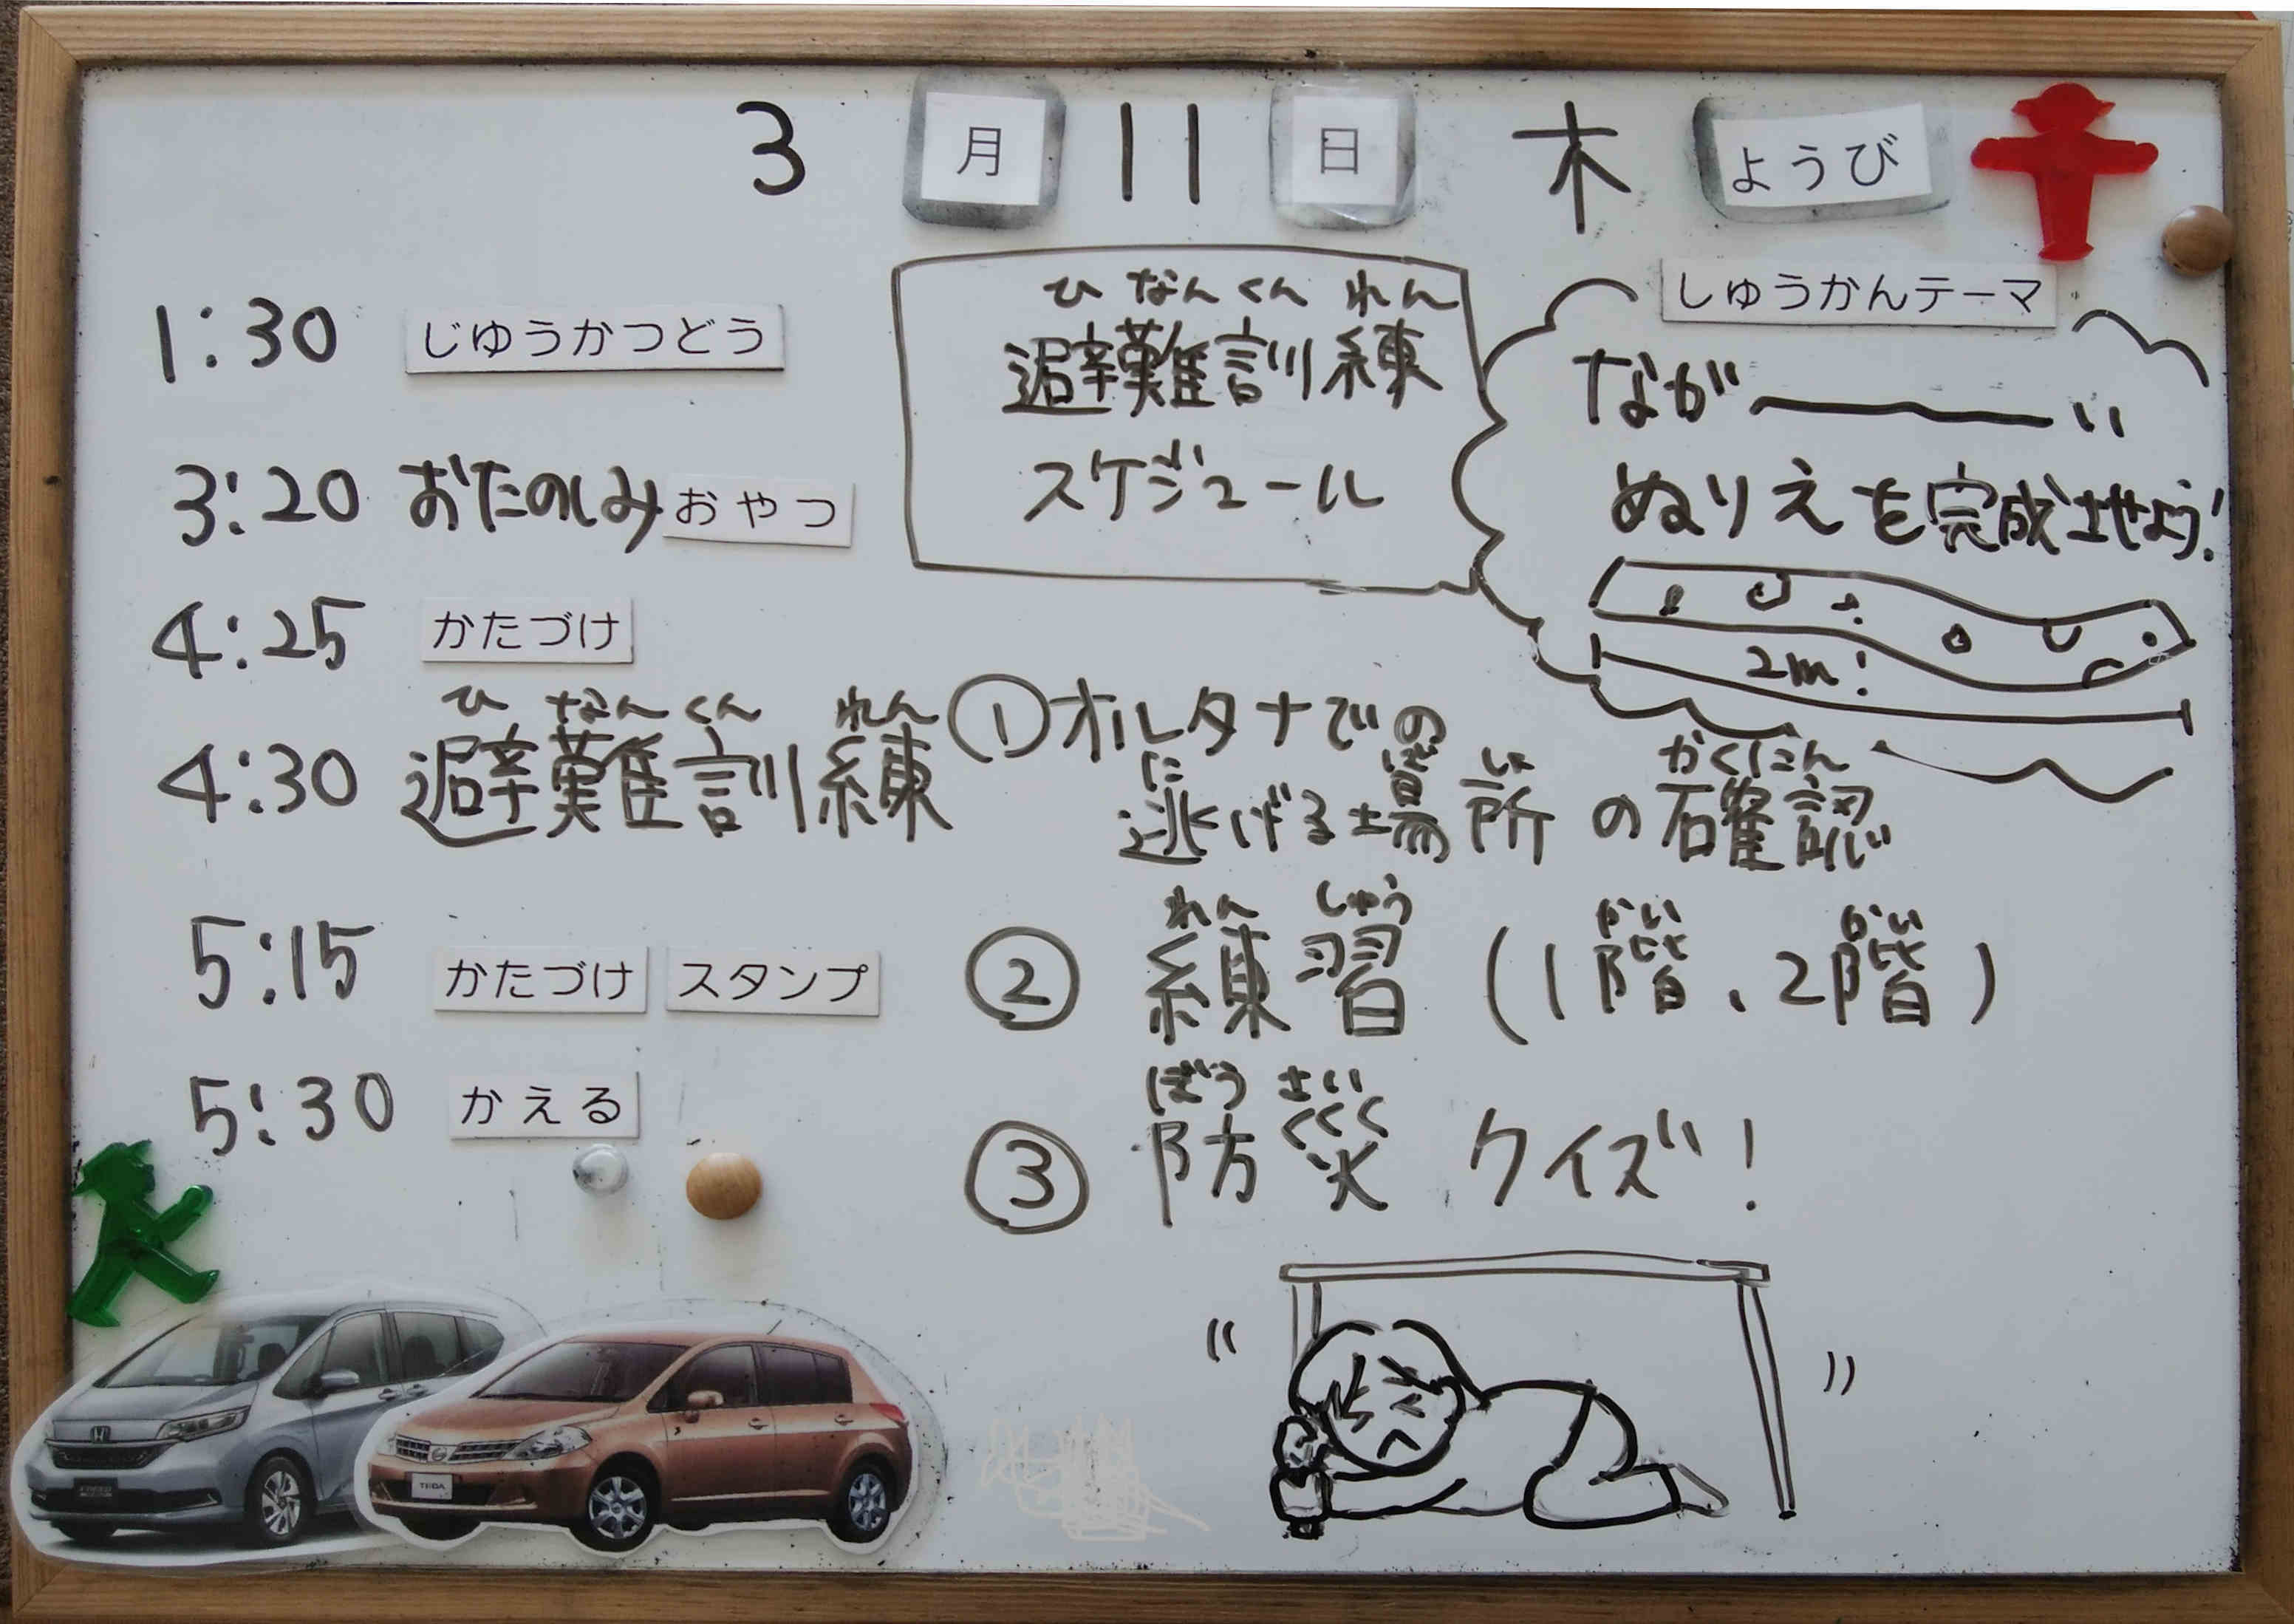 3月11日 木ようび
1:30 じゆうかつどう
3:20 おたのしみおやつ
4:25 かたづけ
ひなんくんれん
4:30 避難訓練
5:15 かたづけ スタンプ
5:30 かえる
ひなんくんれん
避難訓練
スケジュール
しゅうかんテーマ
なが――い
ぬりえを完成させよう!
2m!
①オルタナでの
に ばしょ かくにん
逃げる場所の確認
れんしゅう かい かい
② 練習 (1階、2階)
ぼうさい
③ 防災 クイズ!
TIIDA